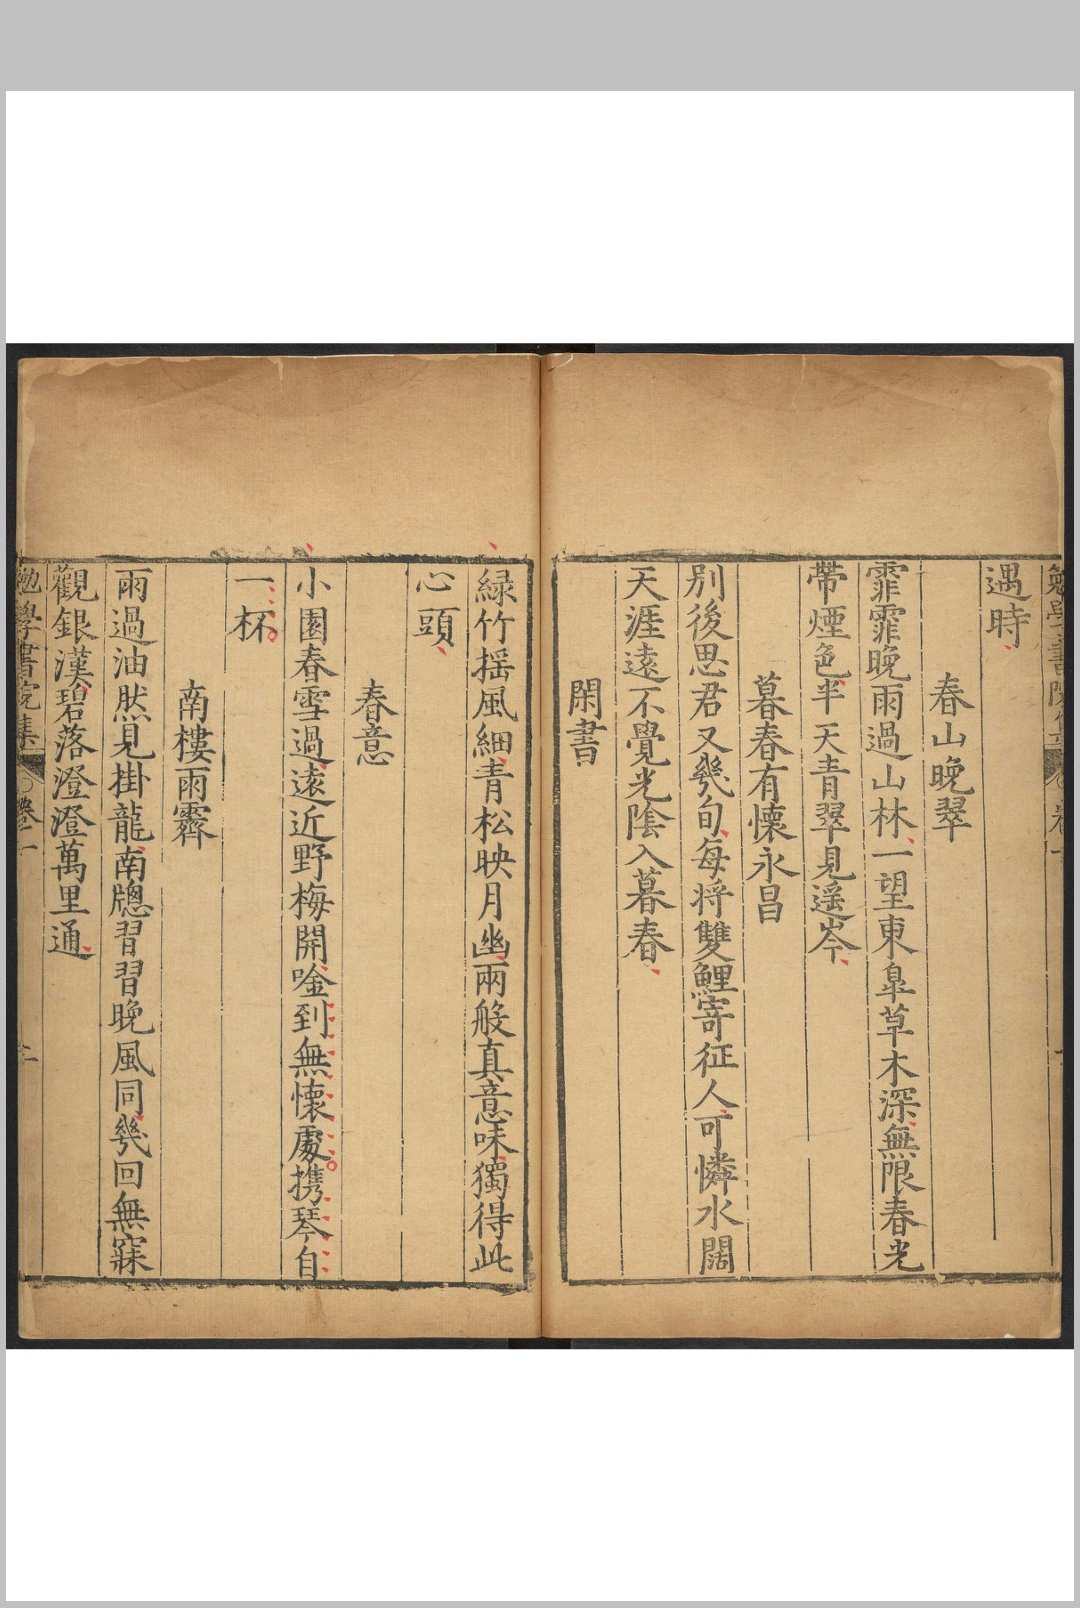 遇時
春山晚翠
霏霏晚雨過山林一望東皐草木深無限春光
帶煙色半天青翠見遥岑
暮春有懷永昌
別後思君又幾旬每將雙鯉寄征人可憐水闊
天涯遠不覺光陰入暮春
閑書
緑竹揺風細青松映月幽兩般真意味獨得此
心頭
春意
小園春雪過遠近野梅開唫到無懷處携琴自
一杯
南樓雨霽
雨過油然見掛龍南牕習習晚風同幾回無寐
觀銀漢碧落澄澄萬里通
勉學書院集 卷一 二